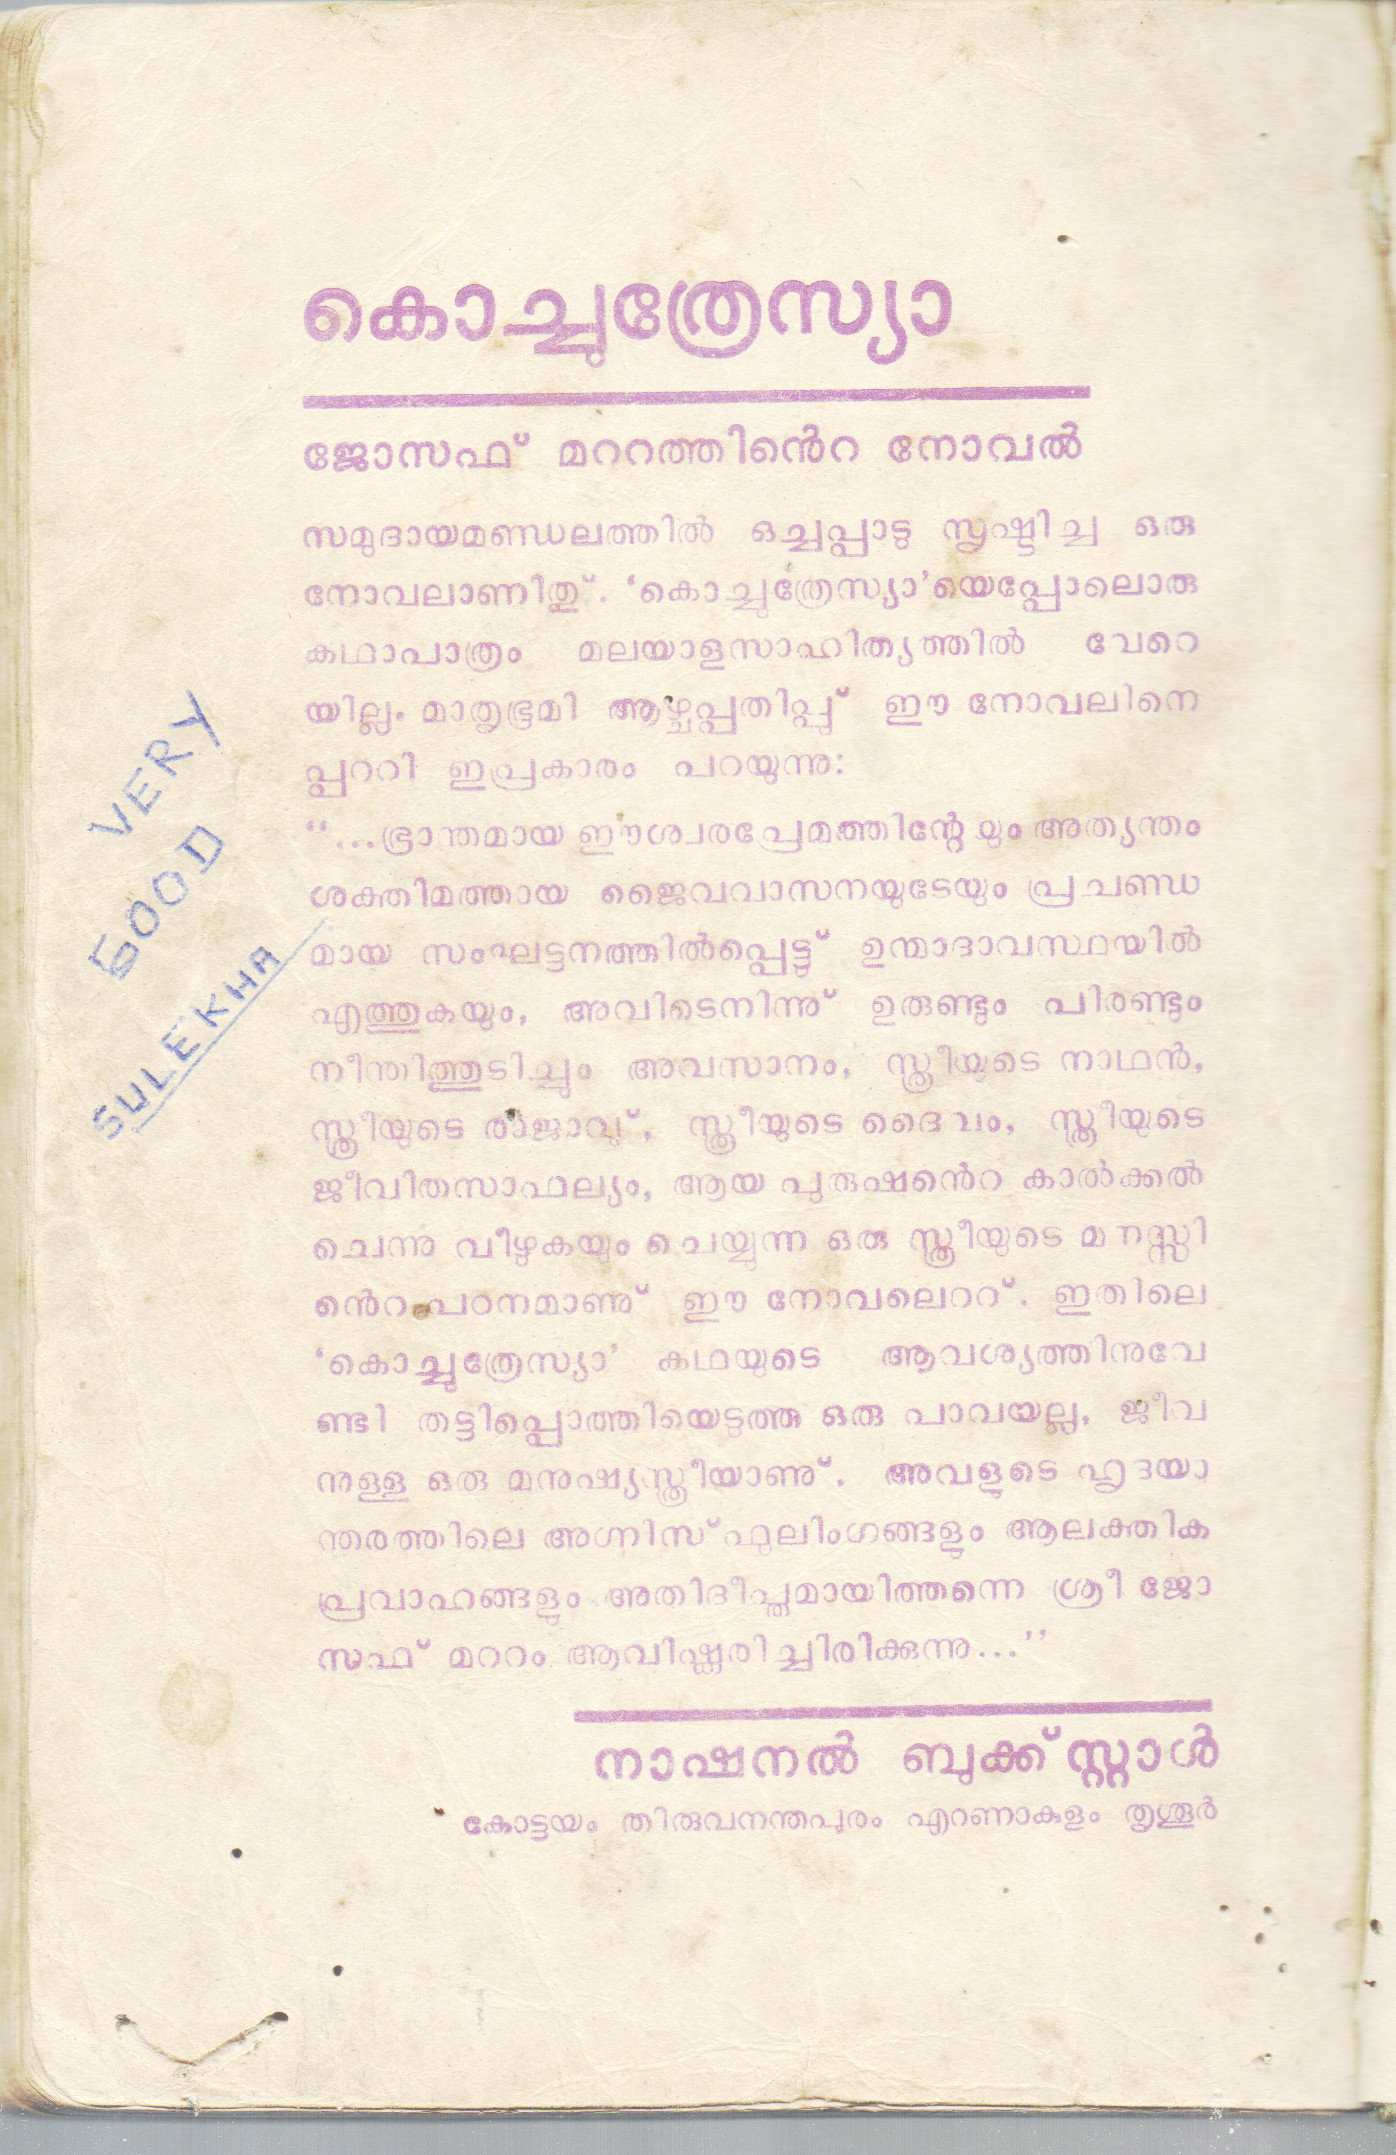 കൊച്ചുത്രേസ്യാ
ജോസഫ് മററത്തിൻെറ നോവൽ
സമുദായമണ്ഡലത്തിൽ ഒച്ചപ്പാടു സൃഷ്ടിച്ച ഒരു
നോവലാണിതു്. ‘കൊച്ചുത്രേസ്യാ’യെപ്പോലൊരു
കഥാപാത്രം മലയാളസാഹിത്യത്തിൽ വേറെ
യില്ല. മാതൃഭൂമി ആഴ്ചപ്പതിപ്പു് ഈ നോവലിനെ
പ്പററി ഇപ്രകാരം പറയുന്നു:
“...ഭ്രാന്തമായ ഈശ്വരപ്രേമത്തിന്റേയും അത്യന്തം
ശക്തിമത്തായ ജൈവവാസനയുടേയും പ്രചണ്ഡ
മായ സംഘട്ടനത്തിൽപ്പെട്ടു് ഉന്മാദാവസ്ഥയിൽ
എത്തുകയും, അവിടെനിന്നു് ഉരുണ്ടും പിരണ്ടും
നീന്തിത്തുടിച്ചും അവസാനം, സ്ത്രീയുടെ നാഥൻ,
സ്ത്രീയുടെ രാജാവു്, സ്ത്രീയുടെ ദൈവം, സ്ത്രീയുടെ
ജീവിതസാഫല്യം, ആയ പുരുഷൻെറ കാൽക്കൽ
ചെന്നു വീഴുകയും ചെയ്യുന്ന ഒരു സ്ത്രീയുടെ മനസ്സി
ൻെറ പഠനമാണു് ഈ നോവലെററ്. ഇതിലെ
‘കൊച്ചുത്രേസ്യാ’ കഥയുടെ ആവശ്യത്തിനുവേ
ണ്ടി തട്ടിപ്പൊത്തിയെടുത്ത ഒരു പാവയല്ല, ജീവ
നുള്ള ഒരു മനുഷ്യസ്ത്രീയാണു്. അവളുടെ ഹൃദയാ
ന്തരത്തിലെ അഗ്നിസ്ഫുലിംഗങ്ങളും ആലക്തിക
പ്രവാഹങ്ങളും അതിദീപ്തമായിത്തന്നെ ശ്രീ ജോ
സഫ് മററം ആവിഷ്കരിച്ചിരിക്കുന്നു...”
നാഷനൽ ബുക്ക് സ്റ്റാൾ
കോട്ടയം തിരുവനന്തപുരം എറണാകുളം തൃശ്ശൂർ
VERY
GOOD
SULEKHA